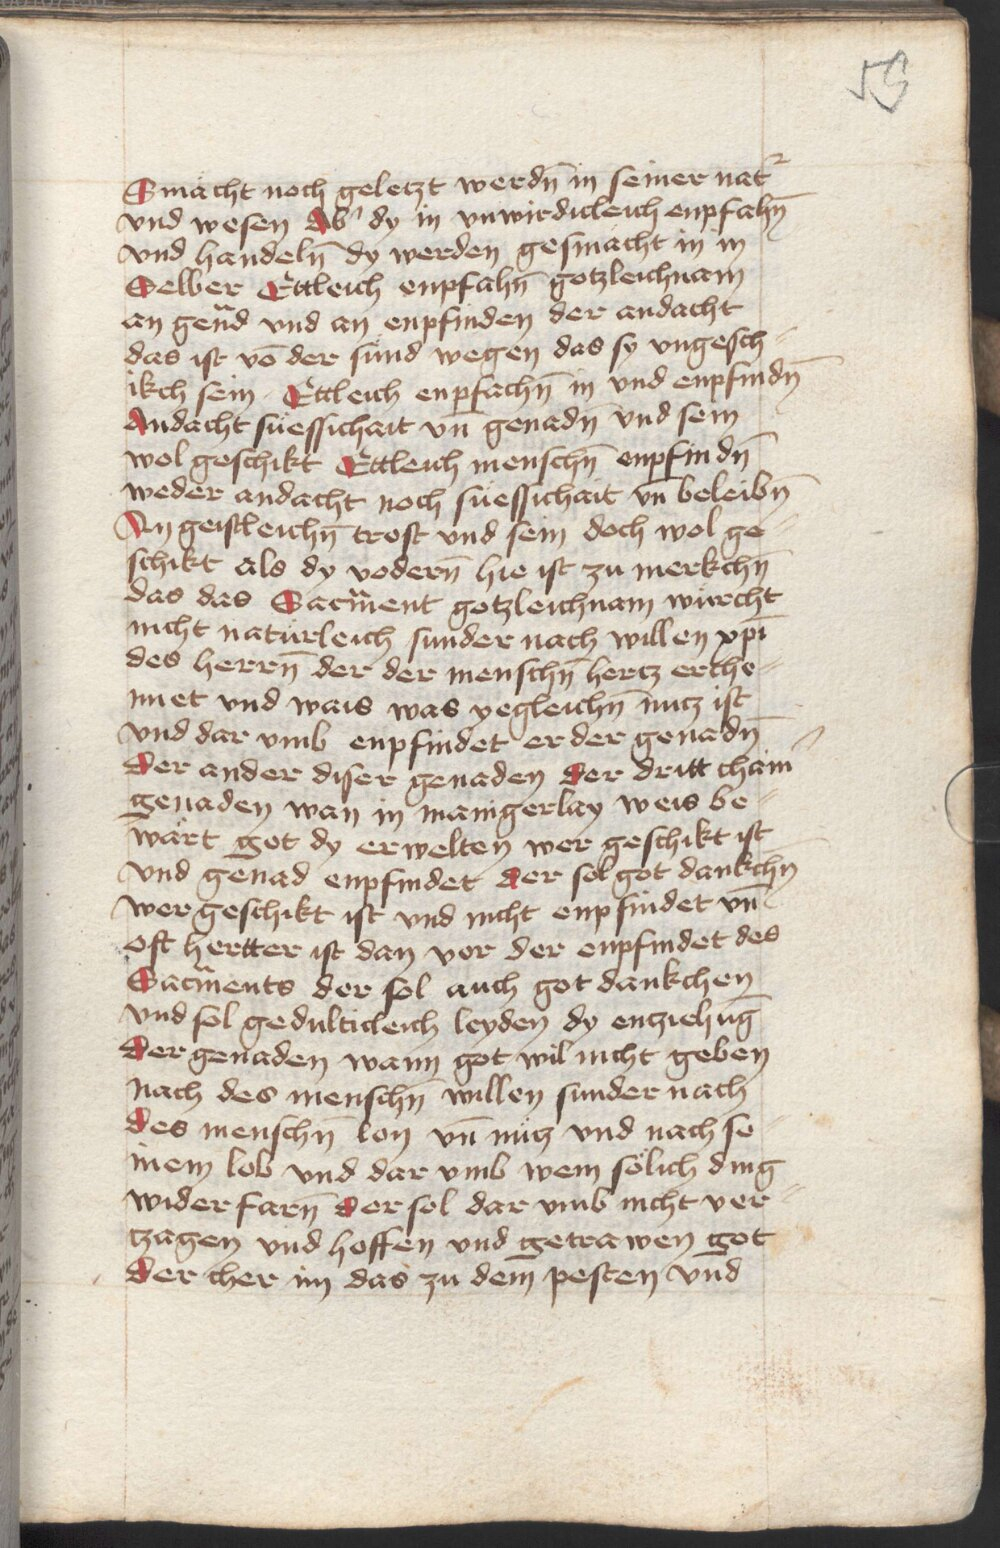 55
Smächt noch geletzt werdn̄ in seiner nat²
vnd wesen Ab' dy in vnwirdicleich enpfahn̄
vnd handeln̄ dy werden gesmächt in in
Selber Ettleich enpfahn̄ gotzleichnam
an gen̄d vnd an enpfinden der andacht
das ist vō der sünd wegen das sy vngesch-
ikch sein Ettleich enpfachn̄ in vnd enpfindn̄
Andacht süessichait vn̄ genadn̄ vnd sein
wol geschikt Ettleich menschn̄ enpfindn̄
weder andacht noch süessichait vn̄ beleibn̄
An geistleichn̄ trost vnd sein doch wol ge-
schikt als dy vodern̄ hie ist zu merkchn̄
das das Sacm̄ent gotzleichnam würcht
nicht natürleich sunder nach willen xpī
des herrn̄ der der menschn̄ hertz erche-
nnet vnd wais was yegleichn̄ nütz ist
vnd dar vmb enpfindet er der genadn̄
der ander diser genaden der dritt chain̄
genaden wan in manigerlay weis be-
wärt got dy erwelten wer geschikt ist
vnd genad enpfindet der sol got dankchn̄
wer geschikt ist vnd nicht enpfindet vn̄
oft hertter ist dan vor der enpfindet des
Sacm̄ents der sol auch got dankchen
vnd sol gedulticleich leyden dy entziehūg
der genaden wann got wil nicht geben
nach des menschn̄ willen sunder nach
des menschn̄ lon vn̄ nütz vnd nach se-
inem lob vnd dar vmb wem sölich ding
widerfarn̄ der sol dar vmb nicht ver-
tzagen vnd hoffen vnd getrawen got
der cher im das zu dem pesten vnd